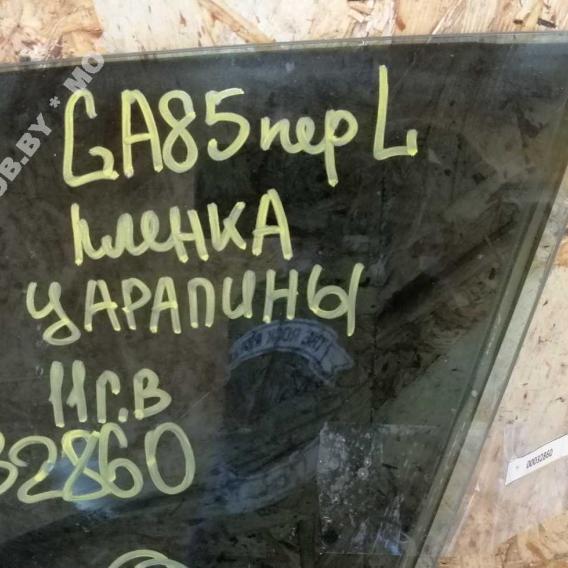 GA85 пер L
пленка
царапины
11 г.в
32860
00032860